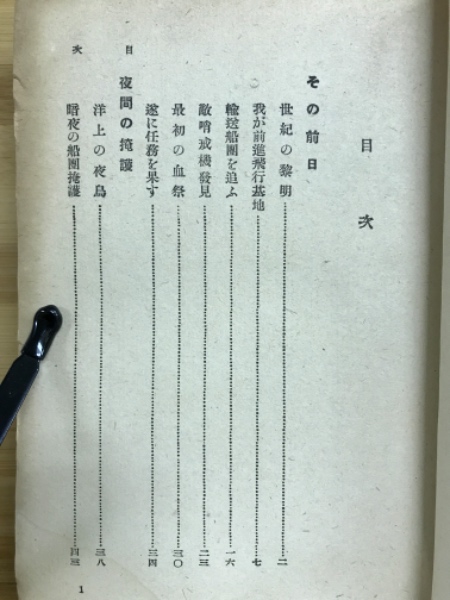 目次
その前日
世紀の黎明……二
我が前進飛行基地……七
輸送船團を追ふ……一六
敵哨戒機發見……二三
最初の血祭……三〇
遂に任務を果す……三四
夜間の掩護
洋上の夜鳥……三八
暗夜の船團掩護……四三
目次
1